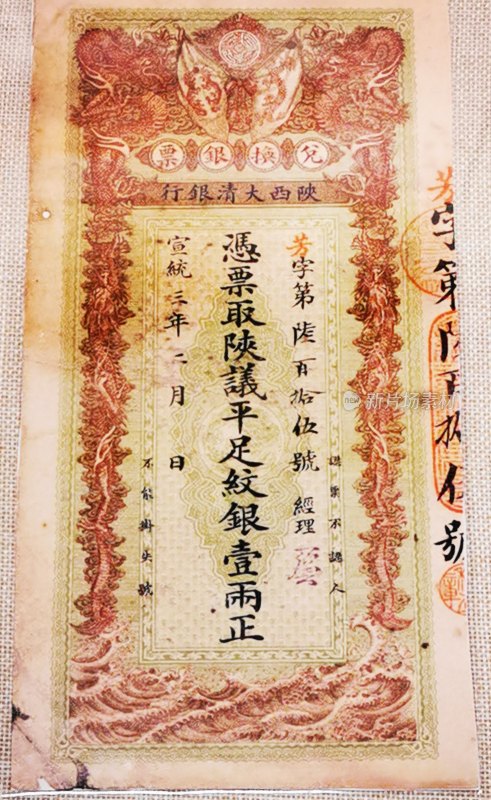 兌換銀票
陝西大清銀行
芳字第陸百拾伍號 經理
認票不認人
憑票取陝議平足紋銀壹兩正
宣統三年二月 日
不能掛失號
芳字第陸百拾伍號
new 新片场素材